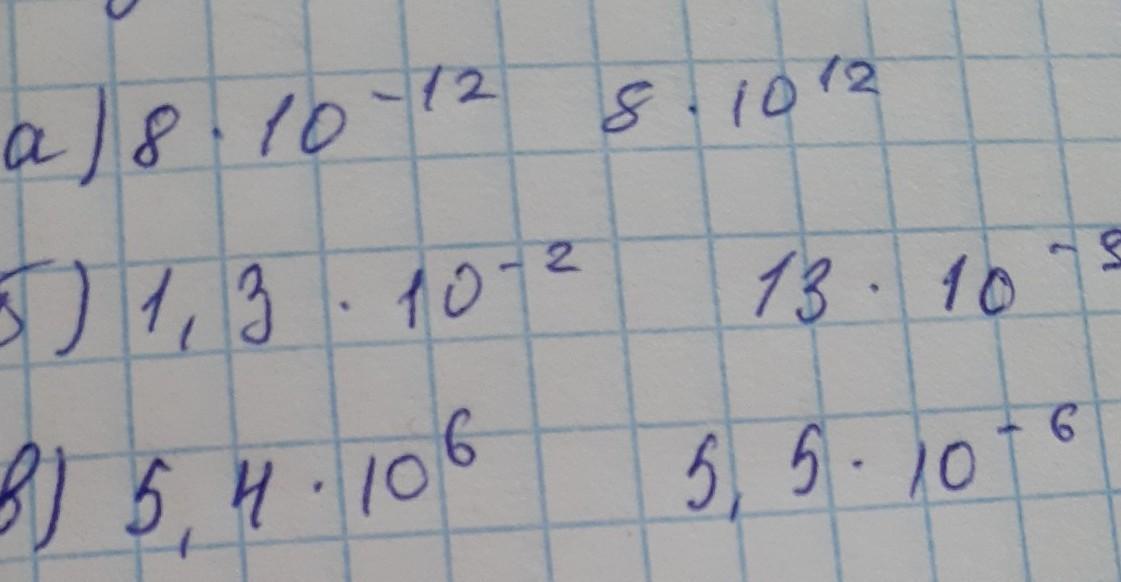 а) 8 · 10⁻¹² 8 · 10¹²
б) 1,3 · 10⁻² 13 · 10⁻
в) 5,4 · 10⁶ 5,5 · 10⁻⁶